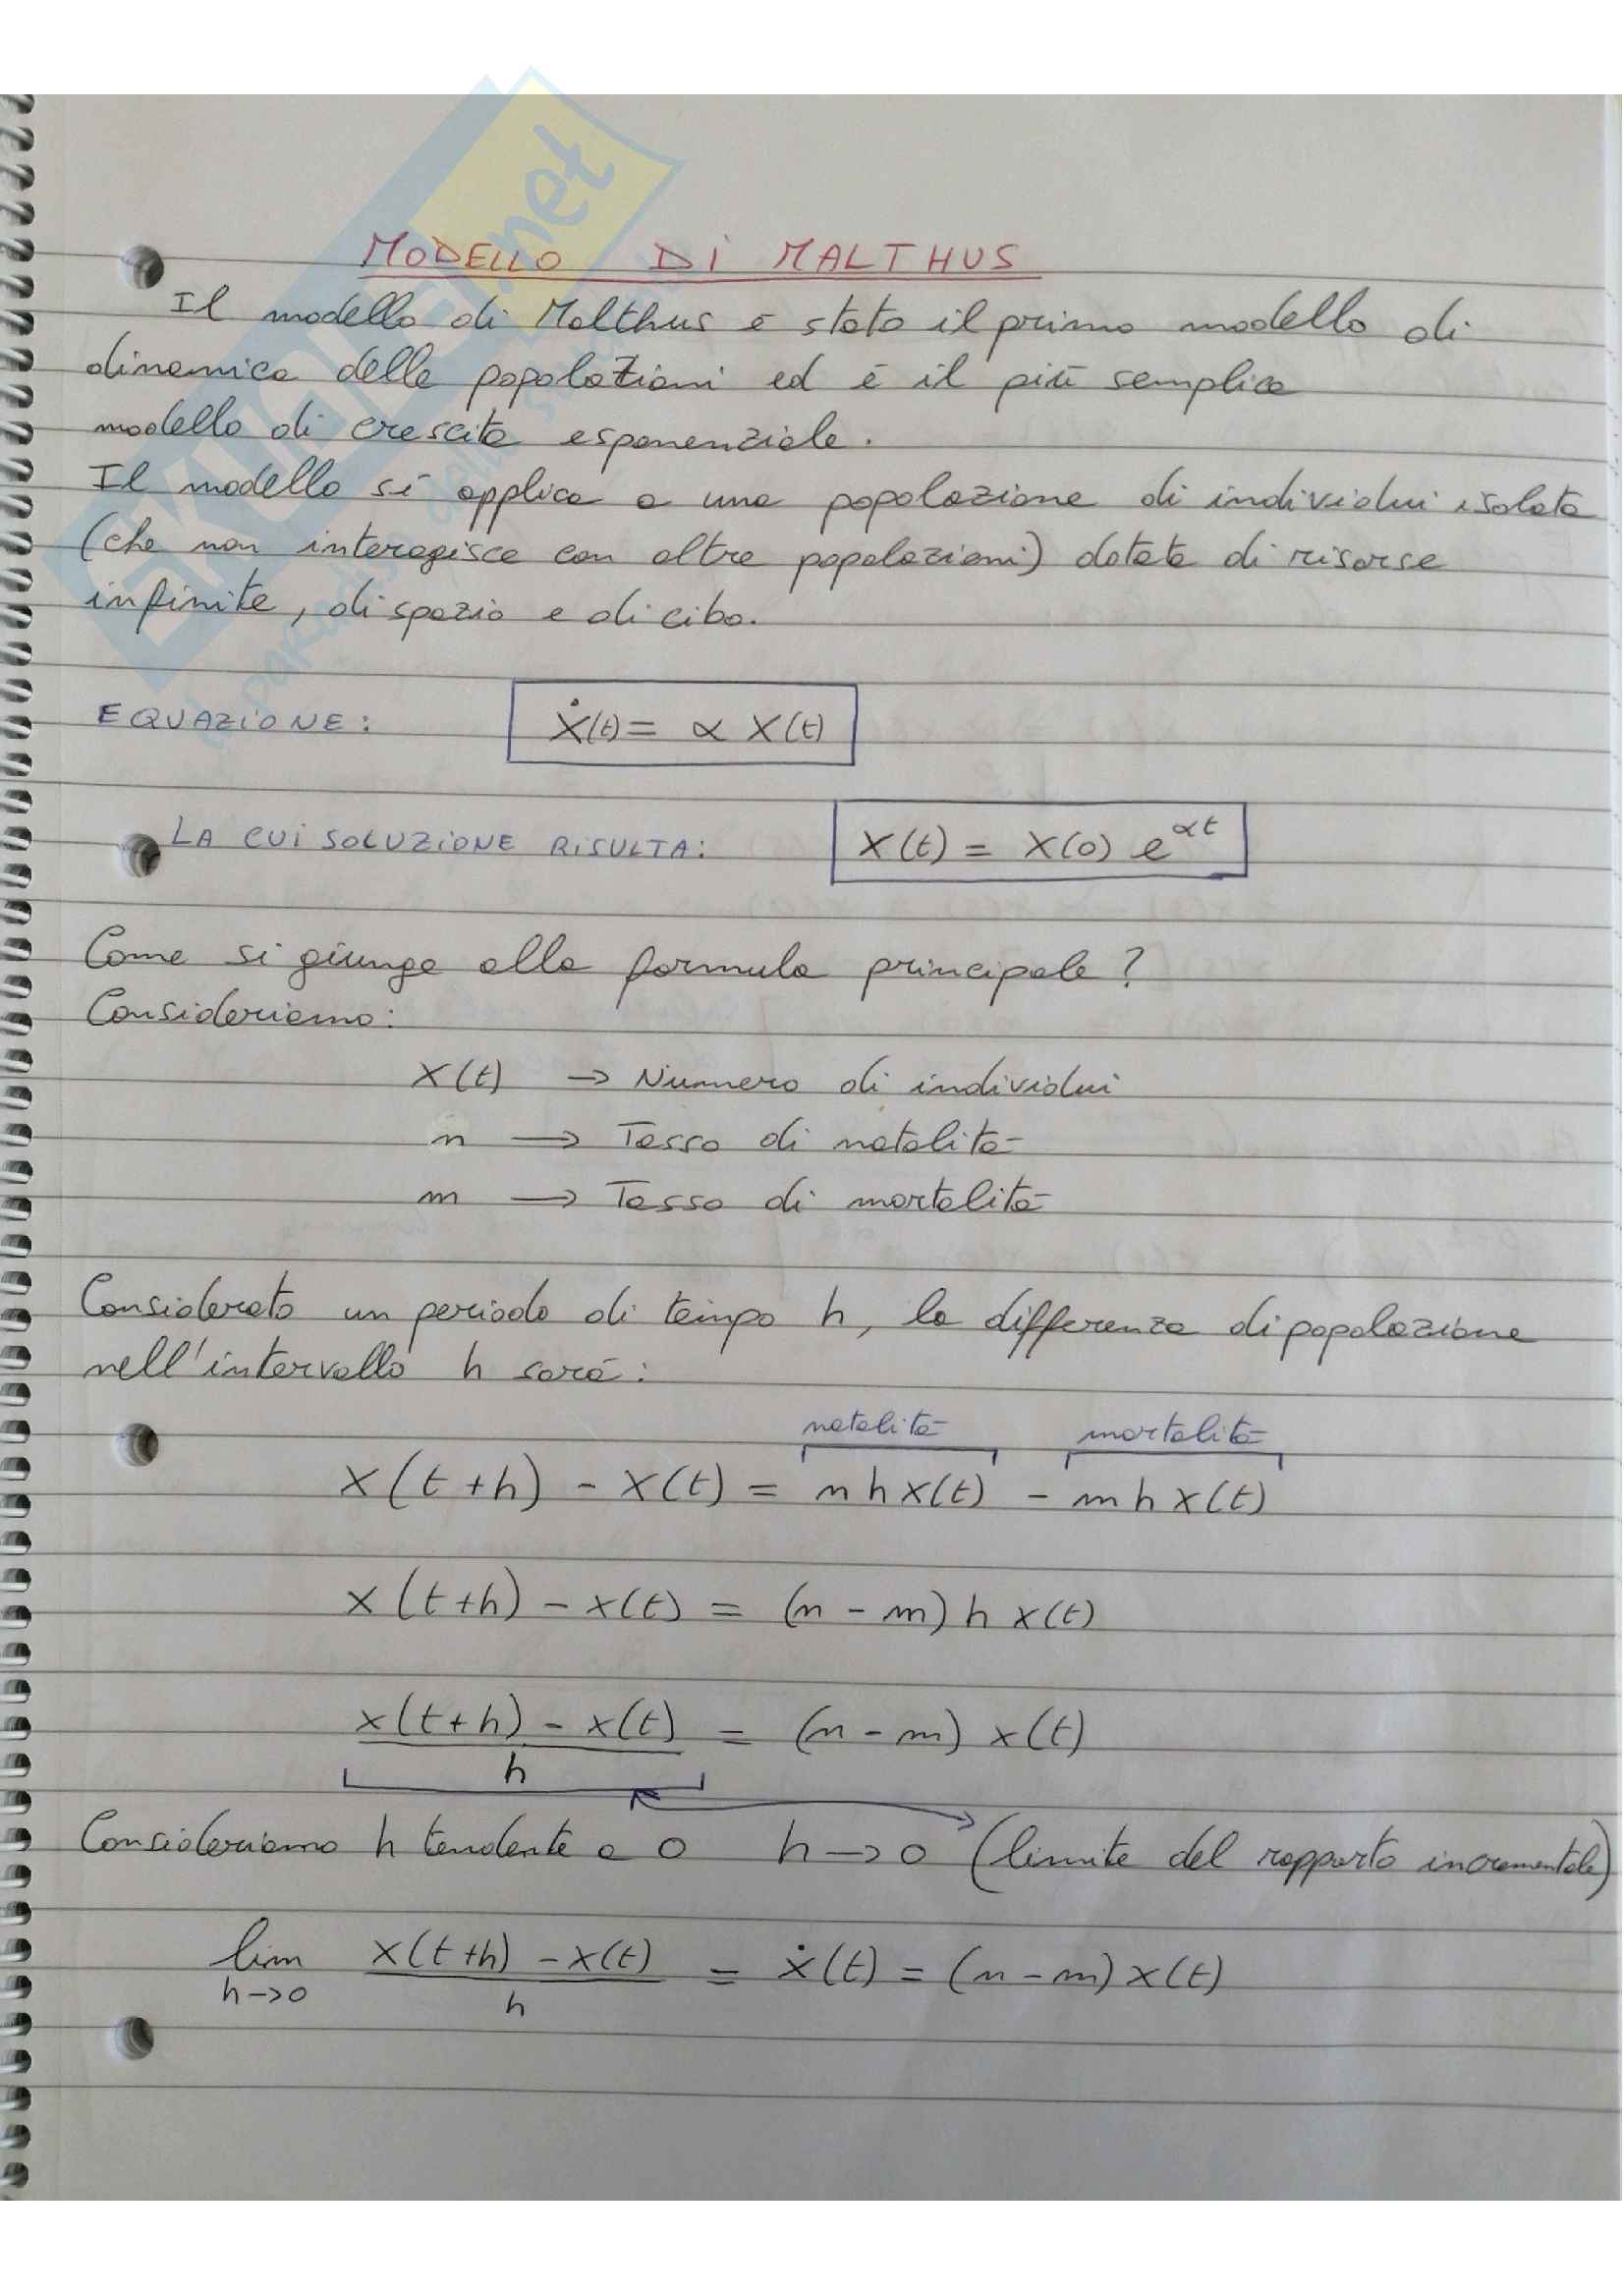 MODELLO DI MALTHUS
Il modello di Malthus è stato il primo modello di
dinamica delle popolazioni ed è il più semplice
modello di crescita esponenziale.
Il modello si applica a una popolazione di individui isolata
(che non interagisce con altre popolazioni) dotata di risorse
infinite, di spazio e di cibo.
EQUAZIONE: ẋ(t) = α x(t)
LA CUI SOLUZIONE RISULTA: x(t) = x(0) e^{αt}
Come si giunge alla formula principale?
Consideriamo:
x(t) → Numero di individui
n → Tasso di natalità
m → Tasso di mortalità
Considerato un periodo di tempo h, la differenza di popolazione
nell'intervallo h sarà:
natalità mortalità
x(t+h) - x(t) = n h x(t) - m h x(t)
x(t+h) - x(t) = (n - m) h x(t)
x(t+h) - x(t) = (n - m) x(t)
h
Consideriamo h tendente a 0 h → 0 (limite del rapporto incrementale)
lim x(t+h) - x(t) = ẋ(t) = (n - m) x(t)
h→0 h